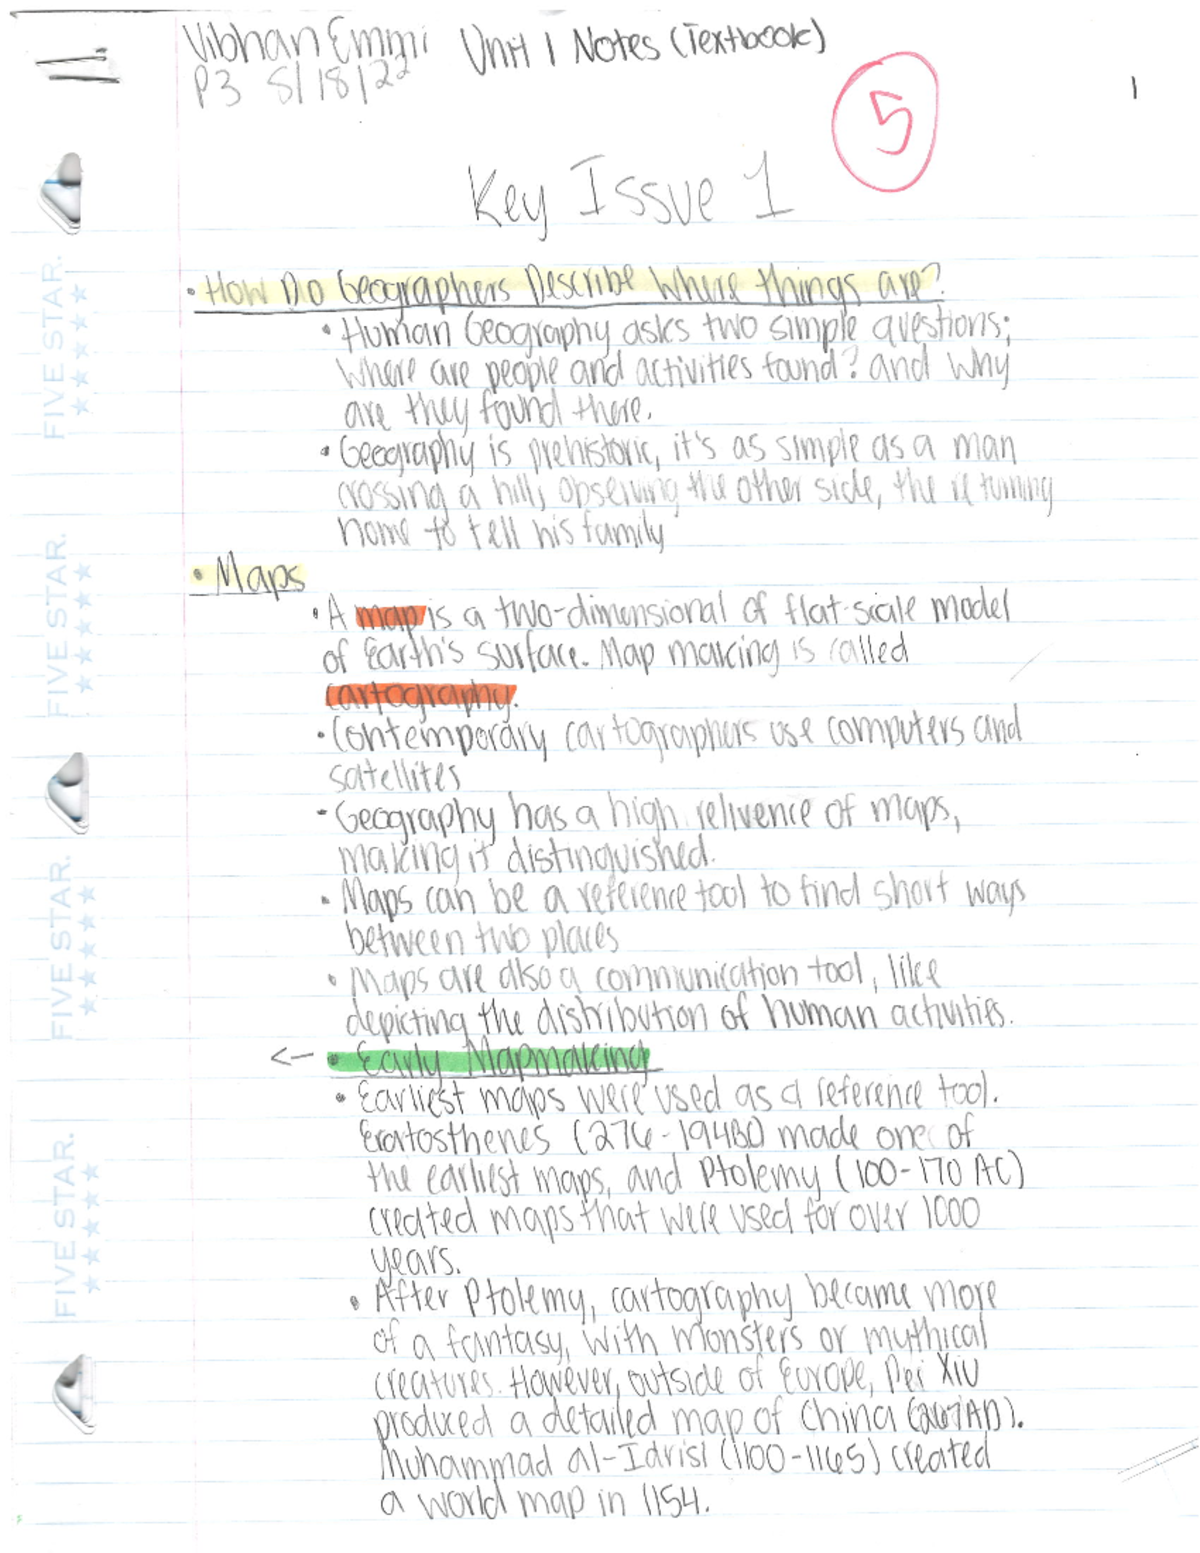 Vibhan Emmi Unit 1 Notes (Textbook)
P3 8/18/22
1
5
Key Issue 1
• How Do Geographers Describe Where things are?
• Human Geography asks two simple questions;
where are people and activities found? and why
are they found there.
• Geography is prehistoric, it's as simple as a man
crossing a hill, observing the other side, the returning
home to tell his family
• Maps
• A map is a two-dimensional of flat-scale model
of Earth's surface. Map making is called
cartography.
• Contemporary cartographers use computers and
satellites
• Geography has a high relivence of maps,
making it distinguished.
• Maps can be a reference tool to find short ways
between two places
• Maps are also a communication tool, like
depicting the distribution of human activities.
<- • Early Mapmaking
• Earliest maps were used as a reference tool.
Eratosthenes (276-194BC) made one of
the earliest maps, and Ptolemy (100-170 AC)
created maps that were used for over 1000
years.
• After Ptolemy, cartography became more
of a fantasy, with monsters or mythical
creatures. However, outside of Europe, Pei Xiu
produced a detailed map of China (267AD).
Muhammad al-Idrisi (1100-1165) created
a world map in 1154.
FIVE STAR.
FIVE STAR.
FIVE STAR.
FIVE STAR.